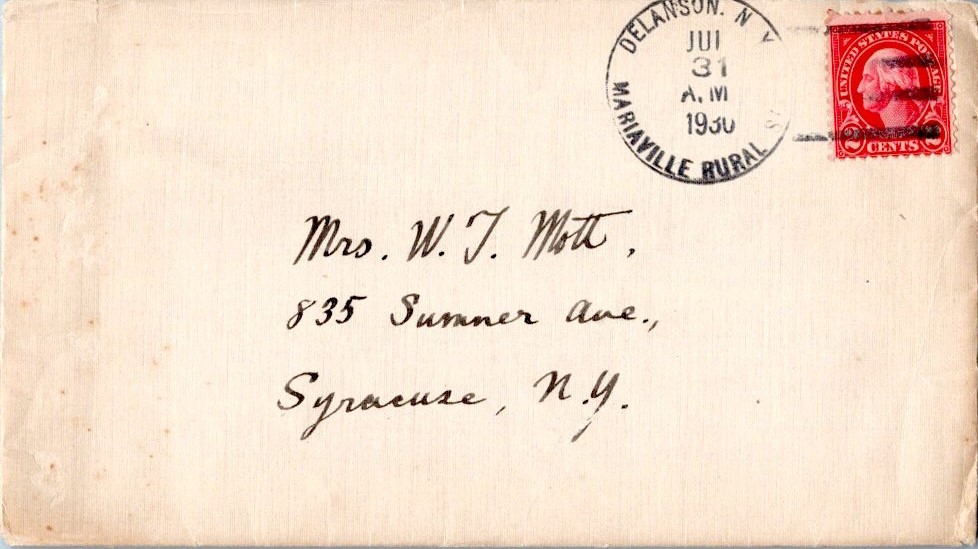 DELANSON. N Y
JUL
31
A.M
1930
MARIAVILLE RURAL
UNITED STATES POSTAGE
2 CENTS 2
Mrs. W. T. Mott,
835 Sumner Ave.,
Syracuse, N.Y.